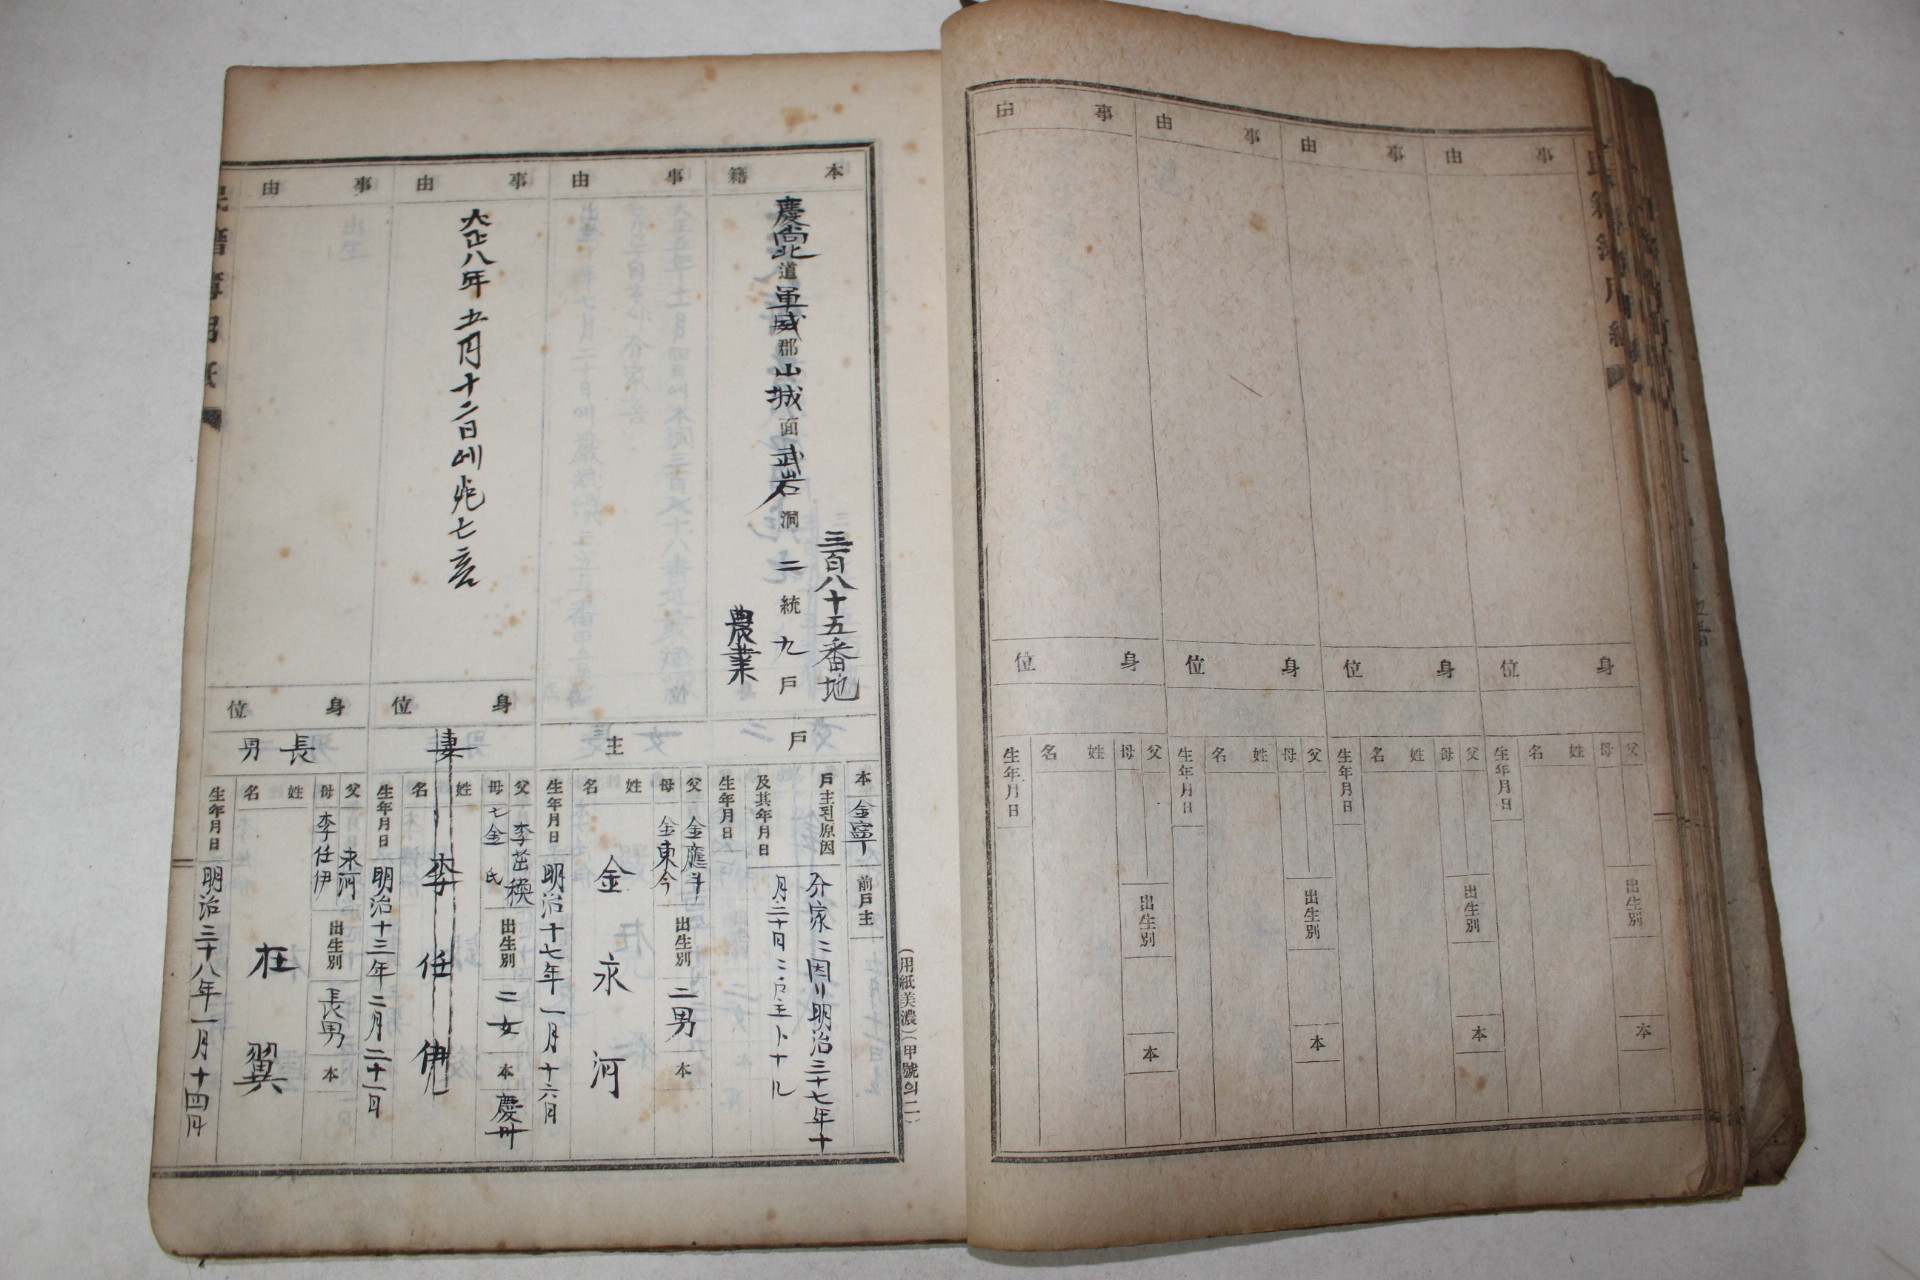 本籍
慶尙北道軍威郡山城面武岩洞二統九戶
三百八十五番地
農業
事由
事由
大正八年五月十二日에死亡
事由
戶主
身位
妻
身位
長男
本
金寧
前戶主
戶主된原因
及其年月日
分家ニ因リ明治三十七年十
月二十日ニ戶主トナル
生年月日
父
金應斗
母
金東今
出生別
二男
本
姓名
金永河
生年月日
明治十七年一月十六日
父
母
金氏
出生別
二女
本
慶州
姓名
李任伊
生年月日
明治十三年二月二十一日
父
永河
母
李任伊
出生別
長男
本
姓名
在翼
生年月日
明治三十八年一月十四日
(用紙美濃)(甲號의二)
民籍簿用紙
事由
事由
事由
事由
身位
身位
身位
身位
父
母
姓名
生年月日
出生別
本
父
母
姓名
生年月日
出生別
本
父
母
姓名
生年月日
出生別
本
父
母
姓名
生年月日
出生別
本